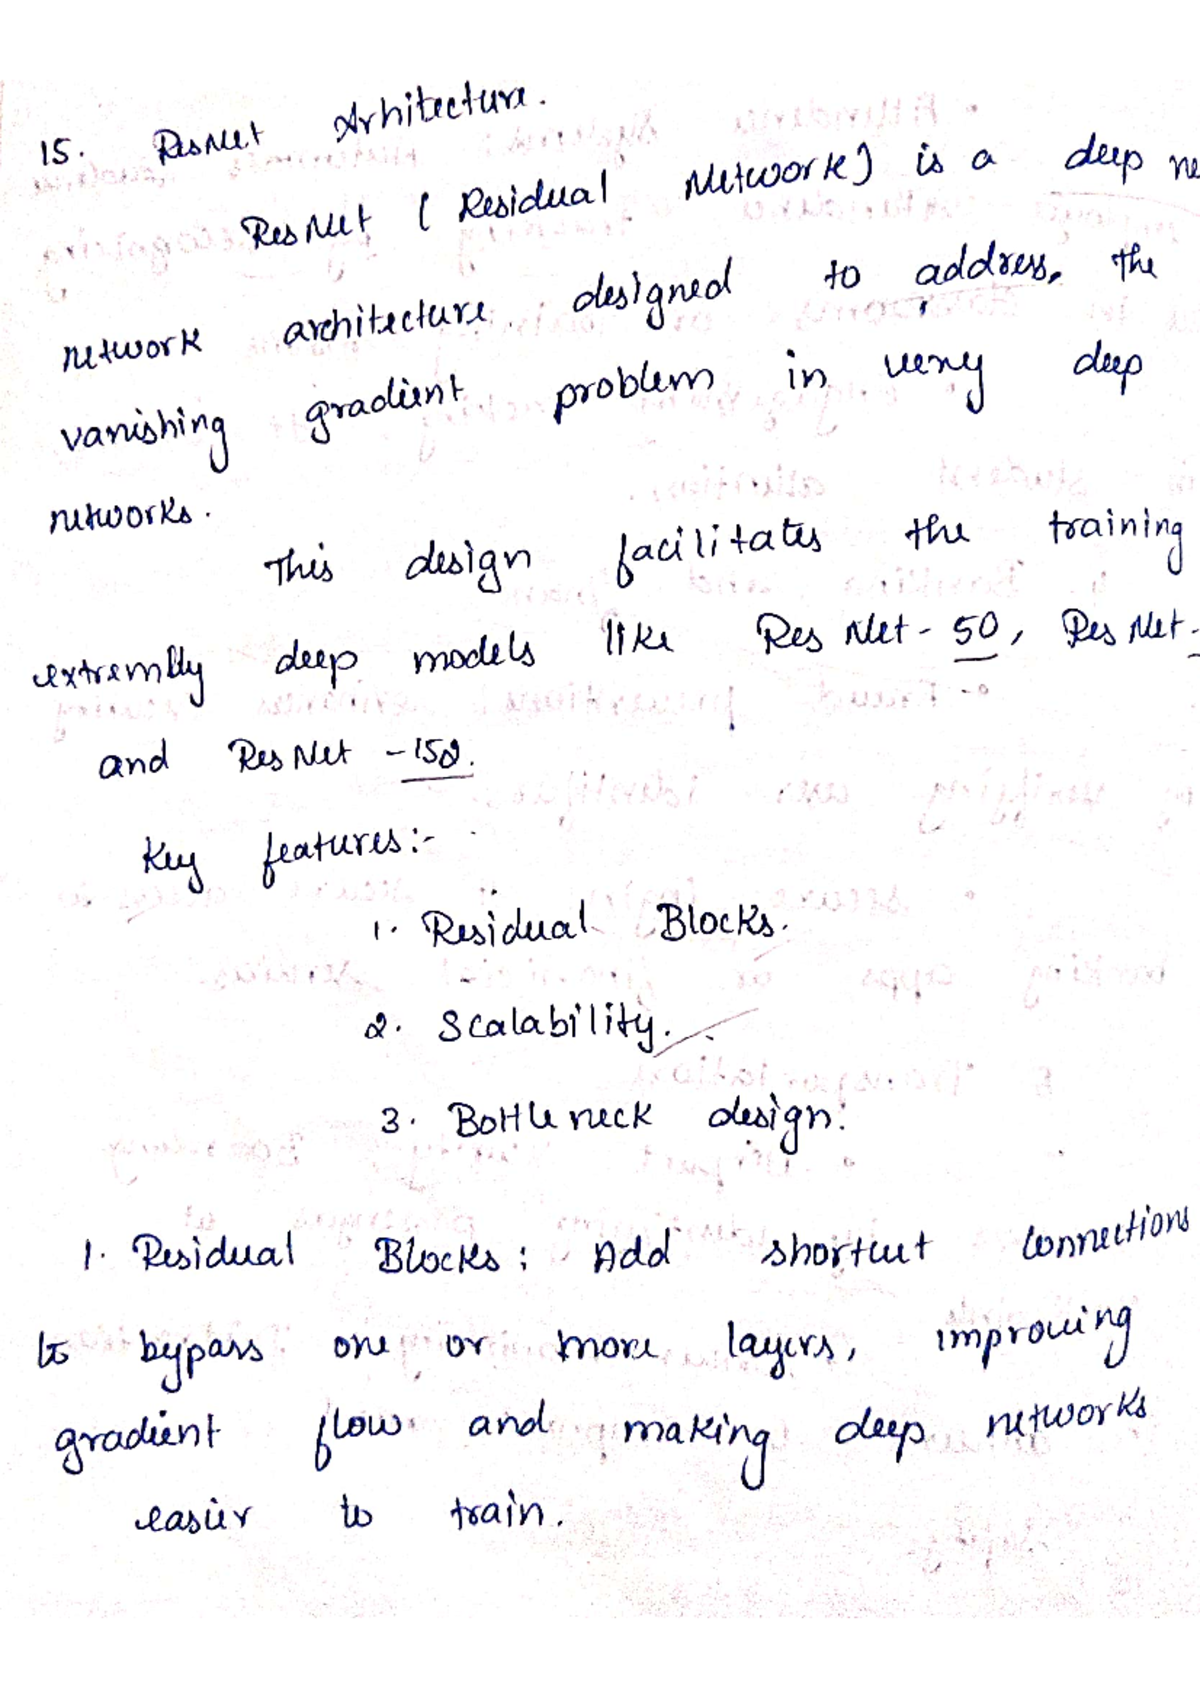 15. ResNet Arhitecture.
ResNet (Residual Network) is a deep ne
network architecture designed to address, the
vanishing gradient problem in very deep
networks.
This design facilitates the training
extremlly deep models like ResNet-50, ResNet-
and ResNet-152.
Key features:-
1. Residual Blocks.
2. Scalability.
3. Bottleneck design:
1. Residual Blocks: Add shortcut connections
to bypass one or more layers, improving
gradient flow and making deep networks
easier to train.